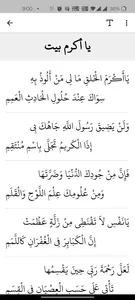 9:00
يا أكرم بيت
يَاأَكْرَمَ الْخَلْقِ مَا لِي مَنْ أَلُوذُ بِهِ
سِوَاكَ عِنْدَ حُلُولِ الْحَادِثِ الْعَمِمِ
وَلَنْ يَضِيقَ رَسُولَ اللَّهِ جَاهُكَ بِي
إِذَا الْكَرِيمُ تَجَلَّى بِاسْمِ مُنْتَقِمِ
فَإِنَّ مِنْ جُودِكَ الدُّنْيَا وَضَرَّتَهَا
وَمِنْ عُلُومِكَ عِلْمَ اللَّوْحِ وَالْقَلَمِ
يَانَفْسُ لَا تَقْنَطِي مِنْ زَلَّةٍ عَظُمَتْ
إِنَّ الْكَبَائِرَ فِي الْغُفْرَانِ كَاللَّمَمِ
لَعَلَّ رَحْمَةَ رَبِّي حِينَ يَقْسِمُهَا
تَأْتِي عَلَى حَسَبِ الْعِصْيَانِ فِي الْقِسَمِ